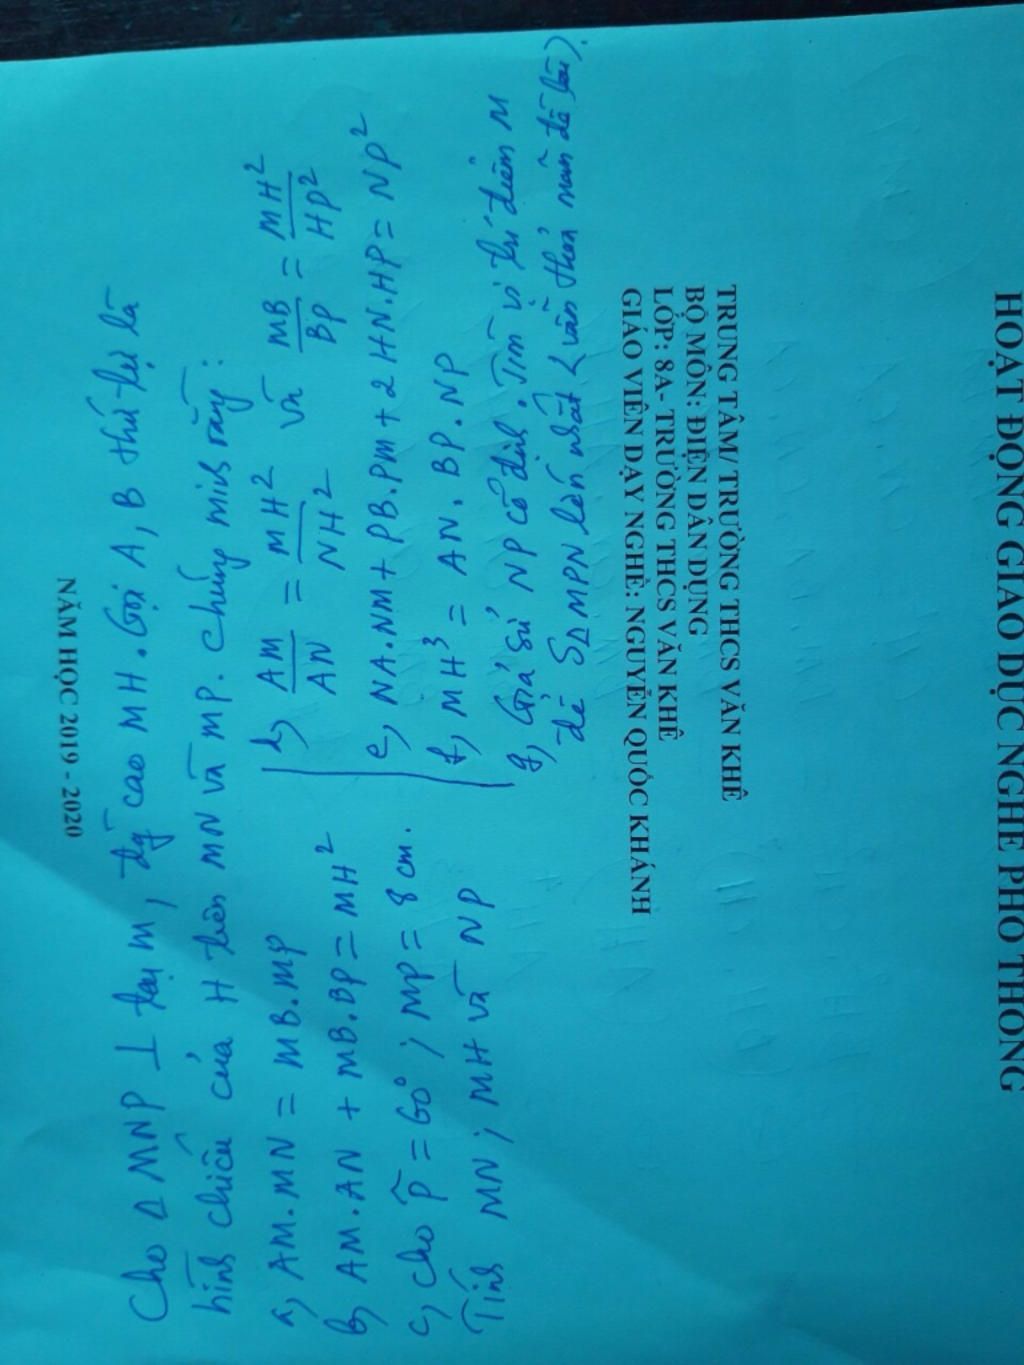 Cho Δ MNP ⊥ tại M, đg cao MH. Gọi A, B thứ tự là
hình chiếu của H trên MN và MP. Chứng minh rằng:
a, AM.MN = MB.MP
b, AM.AN + MB.BP = MH²
c, Cho P̂ = 60°; MP = 8 cm.
Tính MN; MH và NP
d, AM/AN = MH²/NH² và MB/BP = MH²/HP²
e, NA.NM + PB.PM + 2HN.HP = NP²
f, MH³ = AN.BP.NP
g, Giả sử NP cố định. Tìm vị trí điểm M
để SΔMPN lớn nhất (vẫn thoả mãn đề bài).
NĂM HỌC 2019 - 2020
HOẠT ĐỘNG GIÁO DỤC NGHỀ PHỔ THÔNG
TRUNG TÂM/ TRƯỜNG THCS VĂN KHÊ
BỘ MÔN: ĐIỆN DÂN DỤNG
LỚP: 8A- TRƯỜNG THCS VĂN KHÊ
GIÁO VIÊN DẠY NGHỀ: NGUYỄN QUỐC KHÁNH